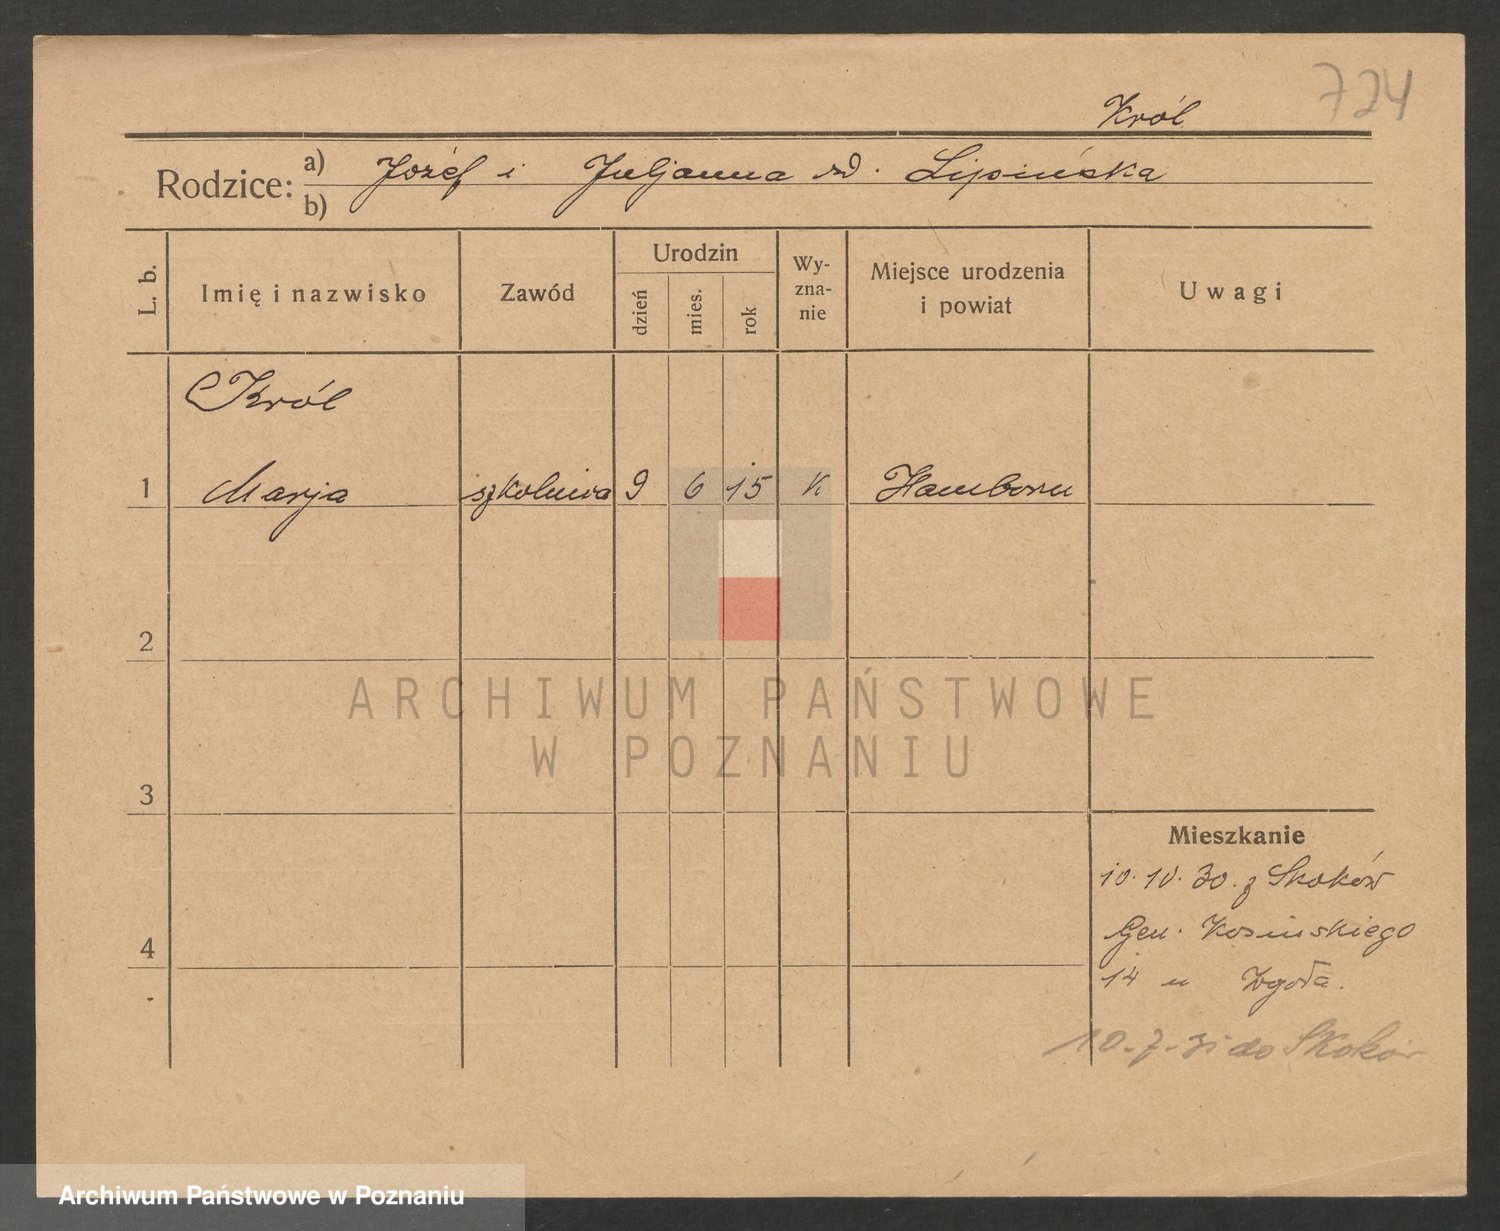 724
Król
Rodzice: a) Józef i Juljanna zd. Lipińska
b)
L. b. Imię i nazwisko Zawód Urodzin dzień mies. rok Wy-zna-nie Miejsce urodzenia i powiat Uwagi
Król
1 Marja szkolnica 9 6 15 K Hamborn
2
3
4
Mieszkanie
10.IV.30. z Skoków
Gen. Kosińskiego
14 u Zgoła.
10-7-31 do Skoków
ARCHIWUM PAŃSTWOWE
W POZNANIU
Archiwum Państwowe w Poznaniu